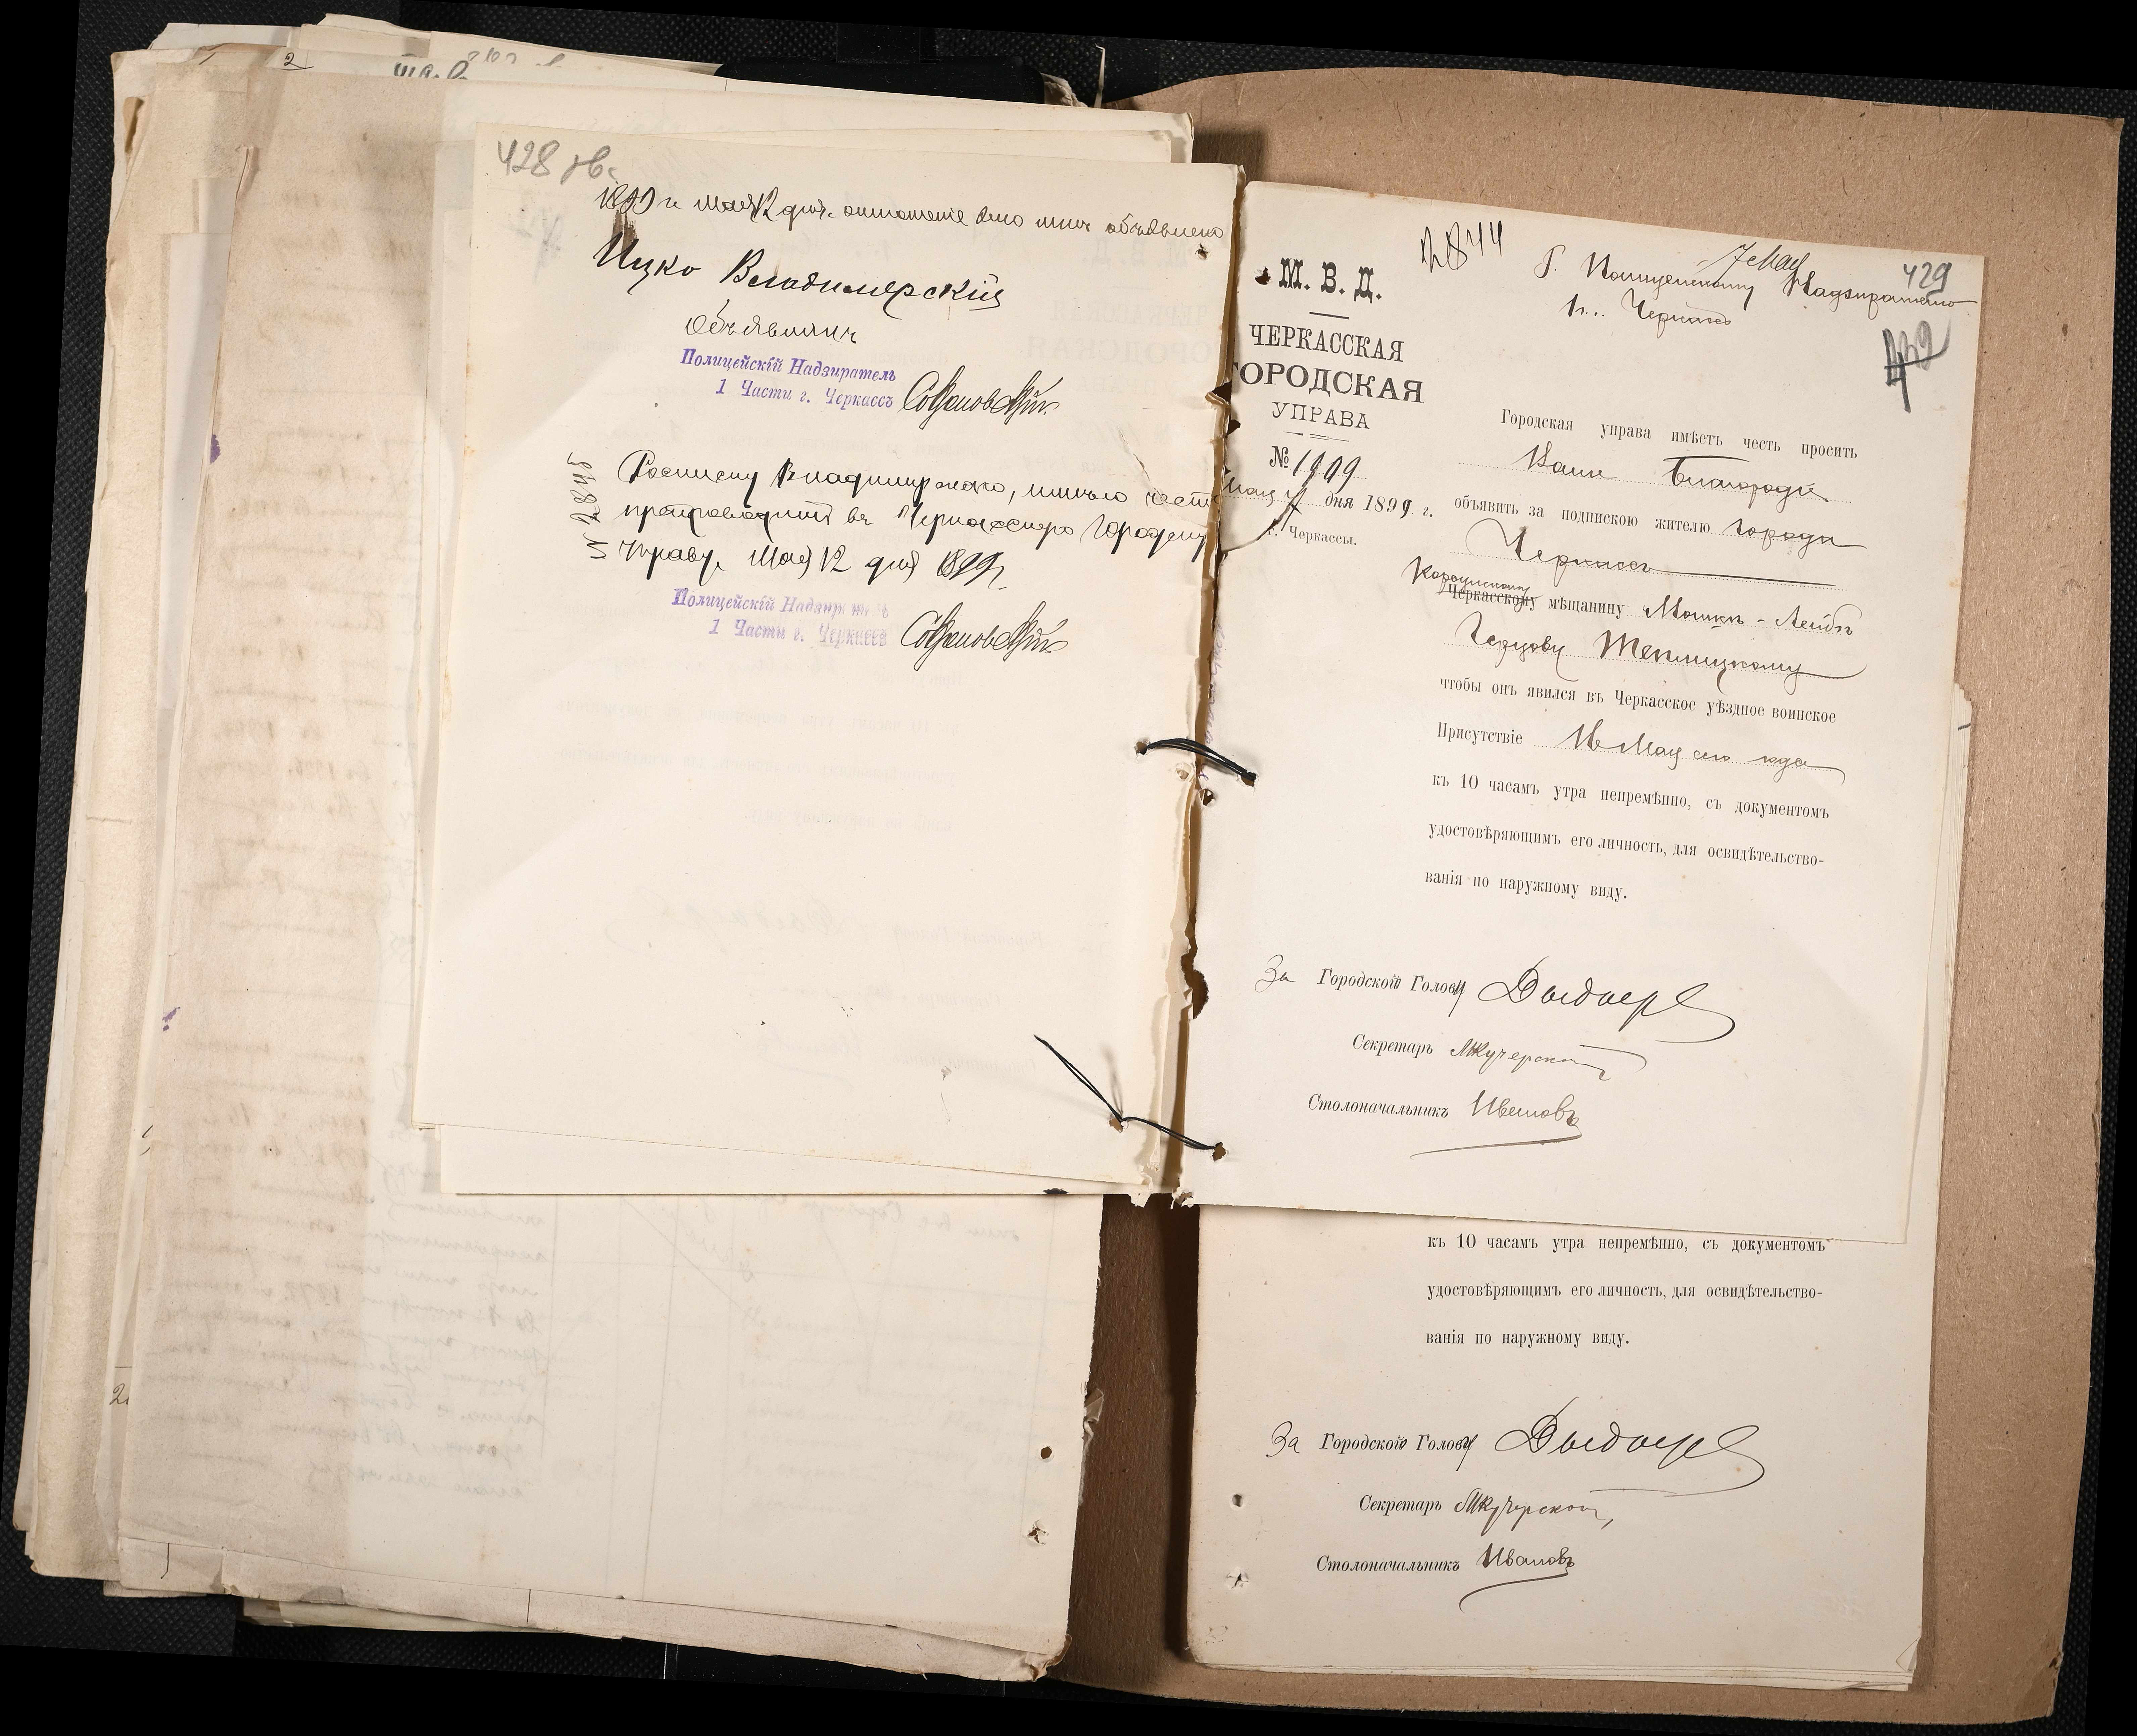 428 об.
1899 г. мая 12 дня отношеніе это мнѣ объявлено
Ицко Владимерскій
Объявилъ
Полицейскій Надзиратель
1 Части г. Черкассъ
№ 2843
Росписку Владимирскаго, имѣю честь
препроводить въ Черкасскую Городскую
Управу. Мая 12 дня 1899 г.
Полицейскій Надзиратель
1 Части г. Черкассъ
2844
7 Мая
429
Г. Полицейскому Надзирателю
1 ч. Черкассъ
М. В. Д.
ЧЕРКАССКАЯ
ГОРОДСКАЯ
УПРАВА
№ 1909
Мая 7 дня 1899 г.
г. Черкассы.
Городская управа имѣетъ честь просить
Ваше Благородіе
объявить за подпискою жителю города
Черкассъ
Корсунскому
Черкасскому мѣщанину Мошкѣ-Лейбѣ
Герцову Теплицкому
чтобы онъ явился въ Черкасское уѣздное воинское
Присутствіе 16 Мая сего года
къ 10 часамъ утра непремѣнно, съ документомъ
удостовѣряющимъ его личность, для освидѣтельство-
ванія по наружному виду.
За Городского Голову
Секретарь МКучерской
Столоначальникъ Ивановъ
къ 10 часамъ утра непремѣнно, съ документомъ
удостовѣряющимъ его личность, для освидѣтельство-
ванія по наружному виду.
За Городского Голову
Секретарь МКучерской
Столоначальникъ Ивановъ